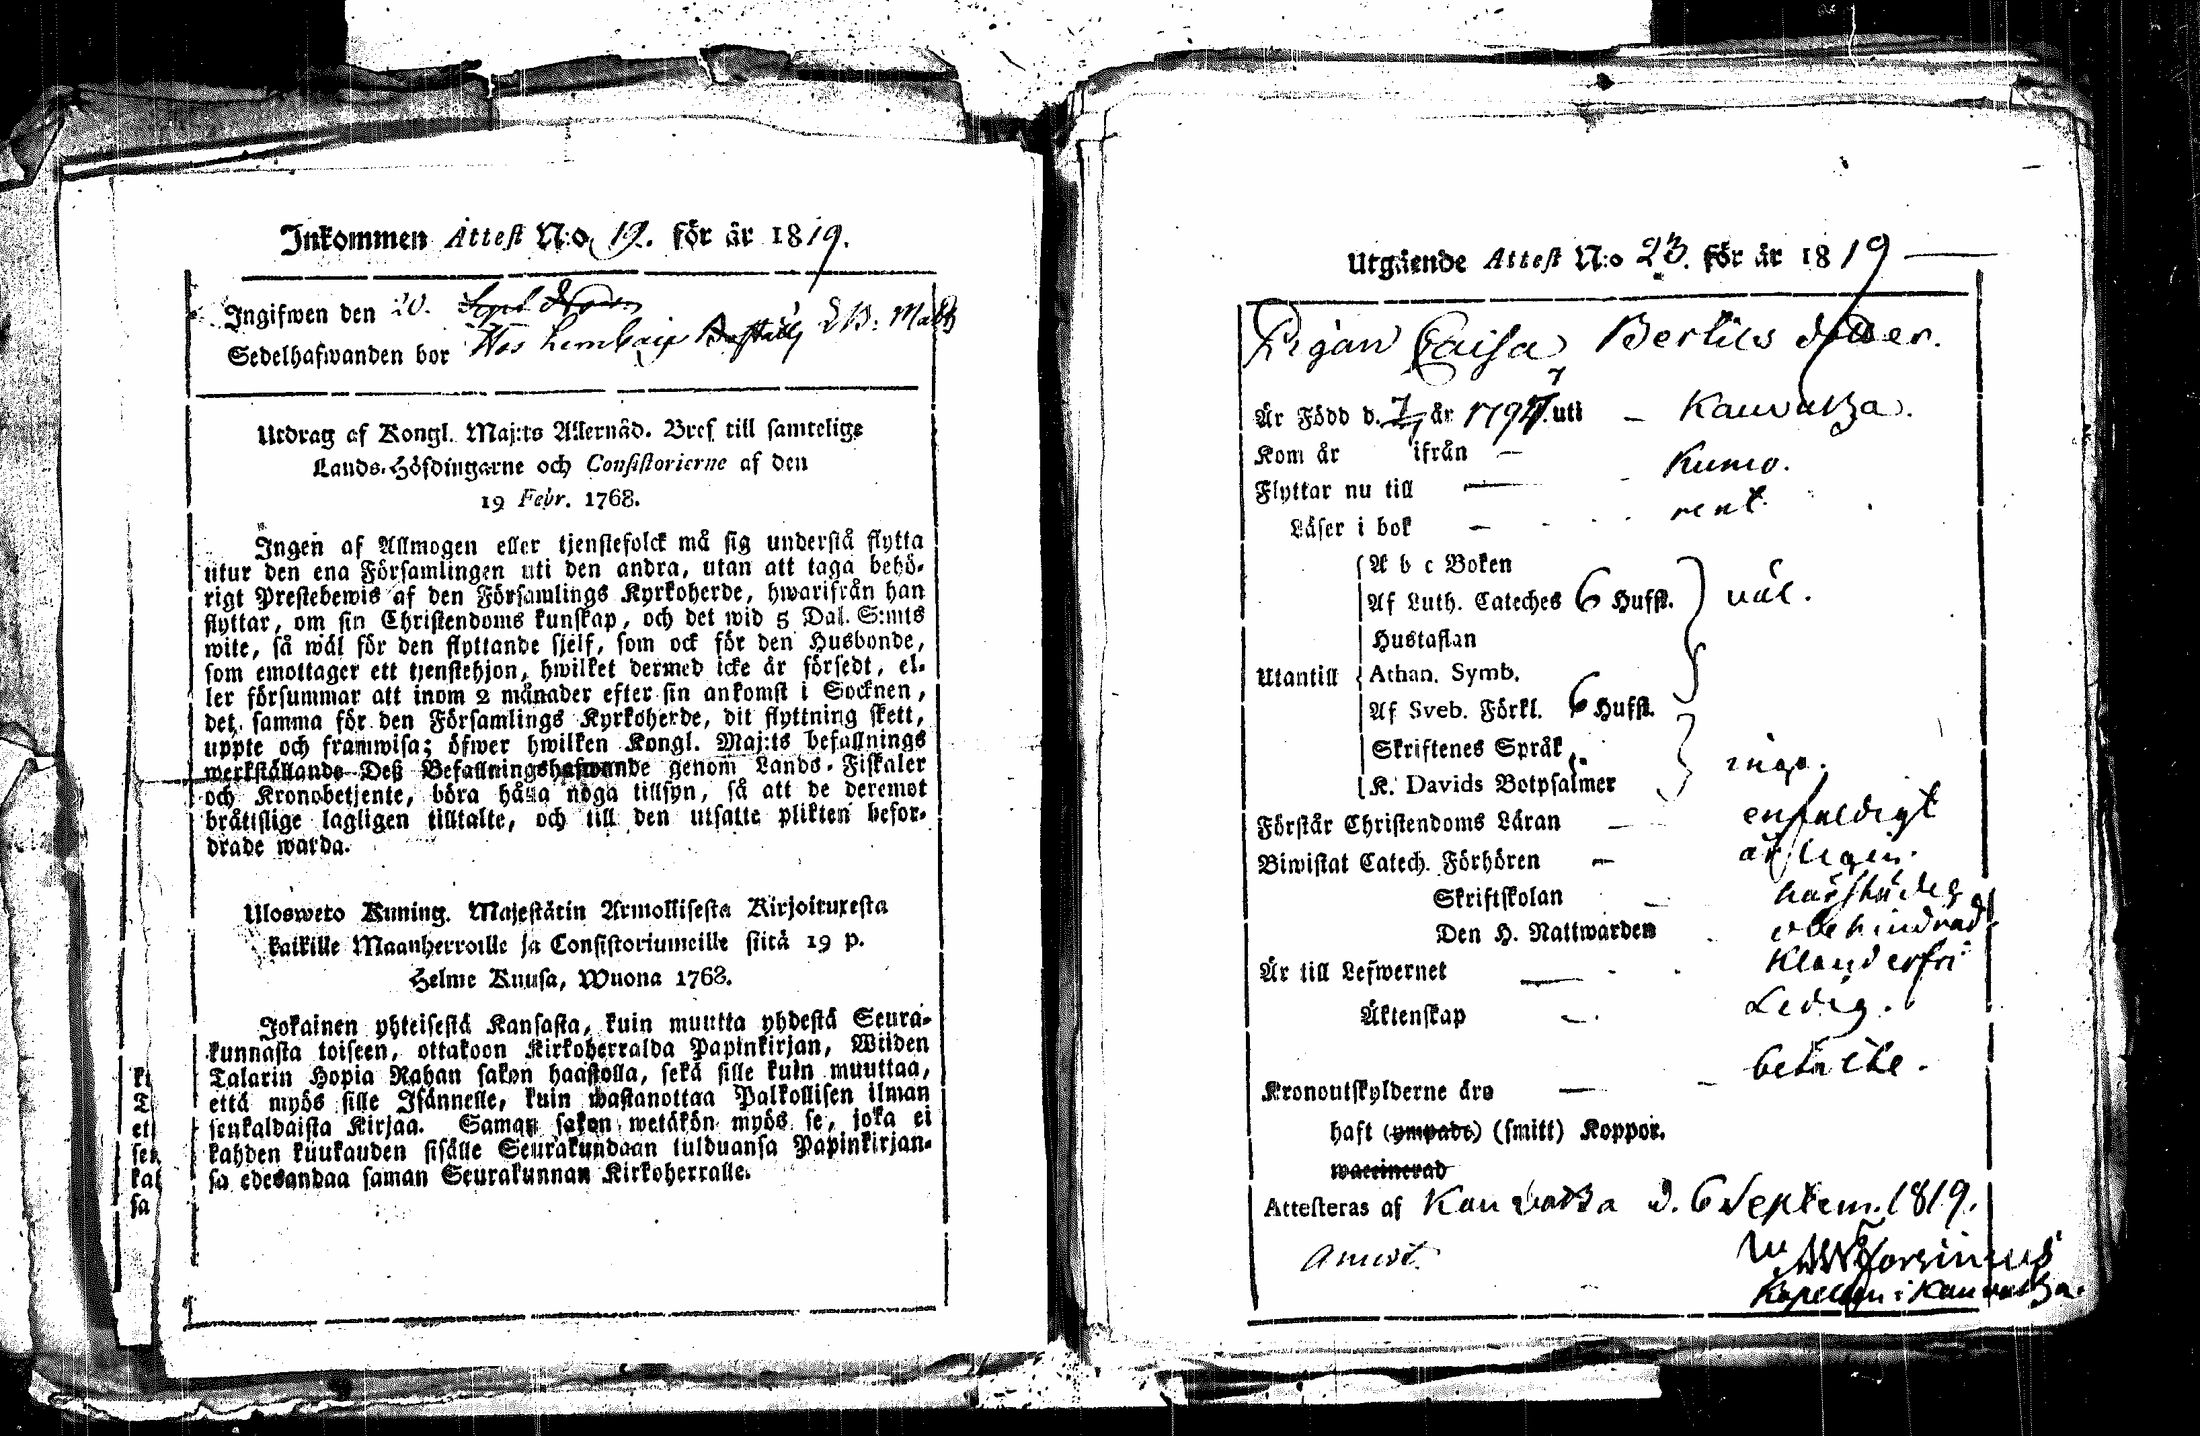 Inkommen Attest N:o 19. för år 1819.
Ingifwen den 20.
Sedelhafwanden bor Hos
Utdrag af Kongl. Maj:ts Allernåd. Bref till samtelige
Lands-Höfdingarne och Consistorierne af den
19 Febr. 1768.
Ingen af Allmogen eller tjenstefolck må sig understå flytta
utur den ena Församlingen uti den andra, utan att taga behö-
rigt Prestebewis af den Församlings Kyrkoherde, hwarifrån han
flyttar, om sin Christendoms kunskap, och det wid 5 Dal. S:mts
wite, så wäl för den flyttande sjelf, som ock för den Husbonde,
som emottager ett tjenstehjon, hwilket dermed icke är försedt, el-
ler försummar att inom 2 månader efter sin ankomst i Socknen,
det samma för den Församlings Kyrkoherde, dit flyttning skett,
uppte och framwisa; öfwer hwilken Kongl. Maj:ts befallnings
werkställande Deß Befallningshafwande genom Lands-Fiskaler
och Kronobetjente, böra hålla noga tillsyn, så att de deremot
bråttslige lagligen tilltalte, och till den utsatte plikten befor-
drade warda.
Ulosweto Kuning. Majestätin Armollisesta Kirjoituxesta
kaikille Maanherroille ja Consistoriumeille siitä 19 p.
Helme Kuusa, Wuona 1768.
Jokainen yhteisestä Kansasta, kuin muutta yhdestä Seura-
kunnasta toiseen, ottakoon Kirkoherralda Papinkirjan, Wiiden
Talarin Hopia Rahan sakon haastolla, sekä sille kuin muuttaa,
että myös sille Isännelle, kuin wastanottaa Palkollisen ilman
senkaldaista Kirjaa. Saman sakon wetäkön myös se, joka ei
kahden kuukauden sisälle Seurakundaan tulduansa Papinkirjan-
sa edesandaa saman Seurakunnan Kirkoherralle.
Utgående Attest N:o 23. för år 1819
Pigan Caisa Bertils dotter.
Är Född d. 7 år 1797. uti Kauvatza.
Kom år ifrån
Flyttar nu till Kumo.
Läser i bok rent.
A b c Boken
Af Luth. Cateches 6 Hufst. väl.
Hustaflan
Utantill Athan. Symb.
Af Sveb. Förkl. 6 Hufst.
Skriftenes Språk
K. Davids Botpsalmer inga.
Förstår Christendoms Läran enfaldigt
Biwistat Catech. Förhören årligen.
Skriftskolan
Den H. Nattwarden obehindrad
Är till Lefwernet klanderfri
Äktenskap Ledig.
Kronoutskylderne äro betalte.
haft (ympade) (smitt) Koppor.
waccinerad
Attesteras af Kauvatza d. 6 Septem. 1819.
Kapellan i Kauvatza.